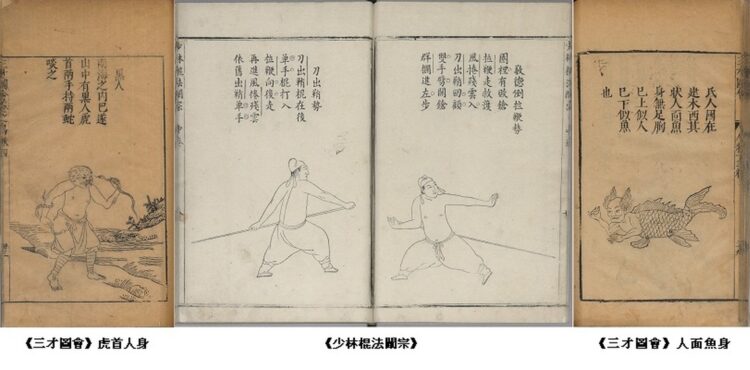 黑人
南海之內巴遂
山中有黑人虎
首兩手持兩蛇
啖之
敬德倒拉鞭勢
圈裡有敗鎗
拉鞭走救護
風捲殘雲入
刀出鞘回顧
雙手劈開鎗
群攔進左步
刀出鞘勢
刀出鞘棍在後
單手棍打入
拉鞭向後走
再進風捲殘雲
依舊出鞘單手
氐人國在
建木西其
狀人面魚
身無足胸
巳上似人
巳下似魚
也
《三才圖會》虎首人身
《少林棍法闡宗》
《三才圖會》人面魚身